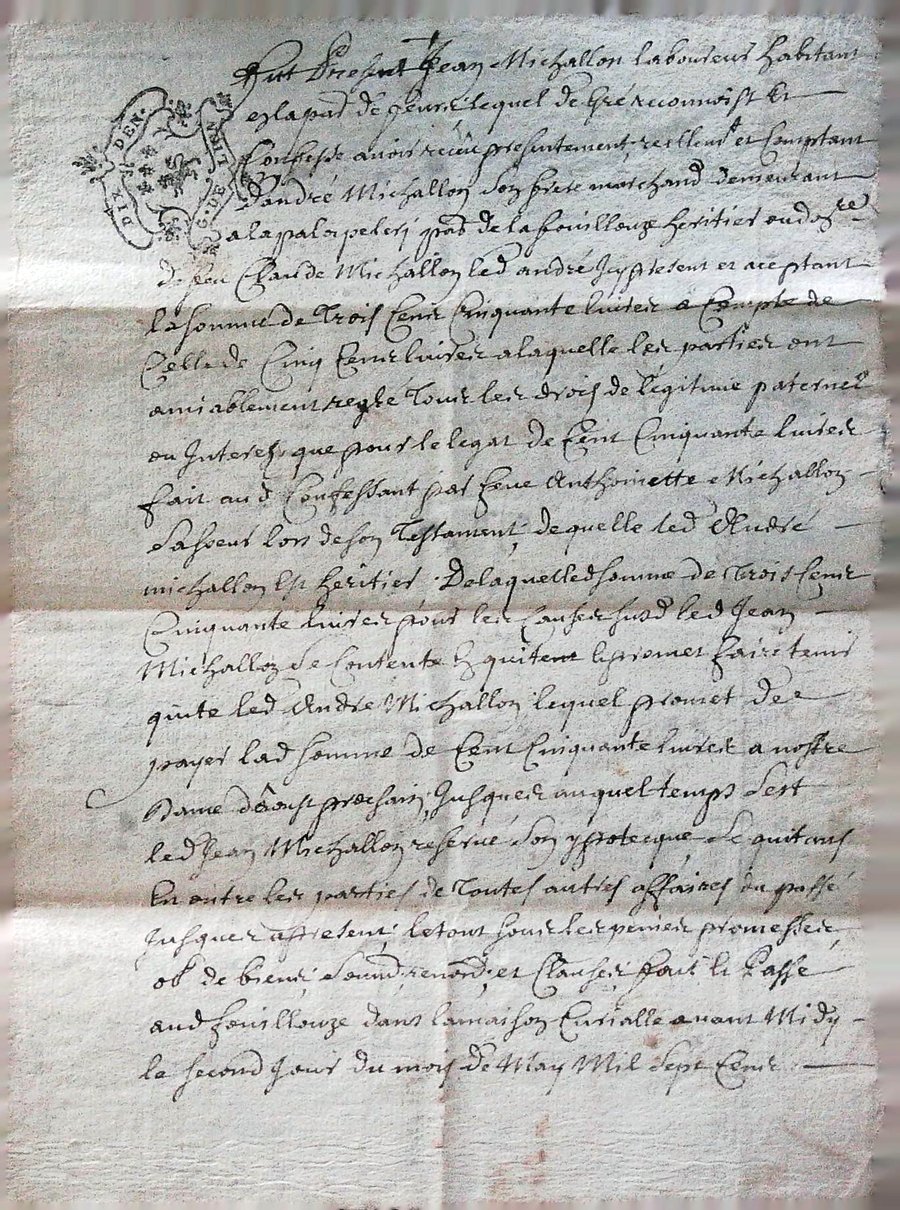 DIX DEN.
G. DE LION
Fut Present Jean Michallon laboureur habitant
en la par de lequel de gré reconnoist et
Confesse avoir reçeu presentement reellemt et Comptant
D'andré Michallon son frere marchand demeurant
a la palen par de la fouillouze heritier
de feu Claude Michallon led andré Icy present et aceptant
la somme de Trois Cent Cinquante livres a Compte de
Celle de Cinq Cent livres a laquelle les parties ont
amiablement reglé Tous les drois de legitime paternel
ou Interes, que pour le legat de Cent Cinquante livres
fait aud Confessant par feue Anthoinette Michallon
sa soeur lors de son Testament, de quelle led André
michallon Est heritier, De laquelled somme de Trois Cent
Cinquante livres pour les Causes susd led Jean
Michallon se Contente En quitent & promet faire tenir
quite led Andre Michallon lequel promet de
payer lad somme de Cent Cinquante livres a nostre
Dame d'aoust prochain, Jusques auquel temps sest
led Jean Michallon reservé son ypotecque, se quitans
En outre les parties de Toutes autres affaires du passé
Jusques apresent, le tout sous les peines promesses,
ob de biens, soumd, renond, et Clauses, fait & Passé
aud fouillouze dans la maison Curialle avant Midy
le second Jour du mois de May Mil Sept Cent